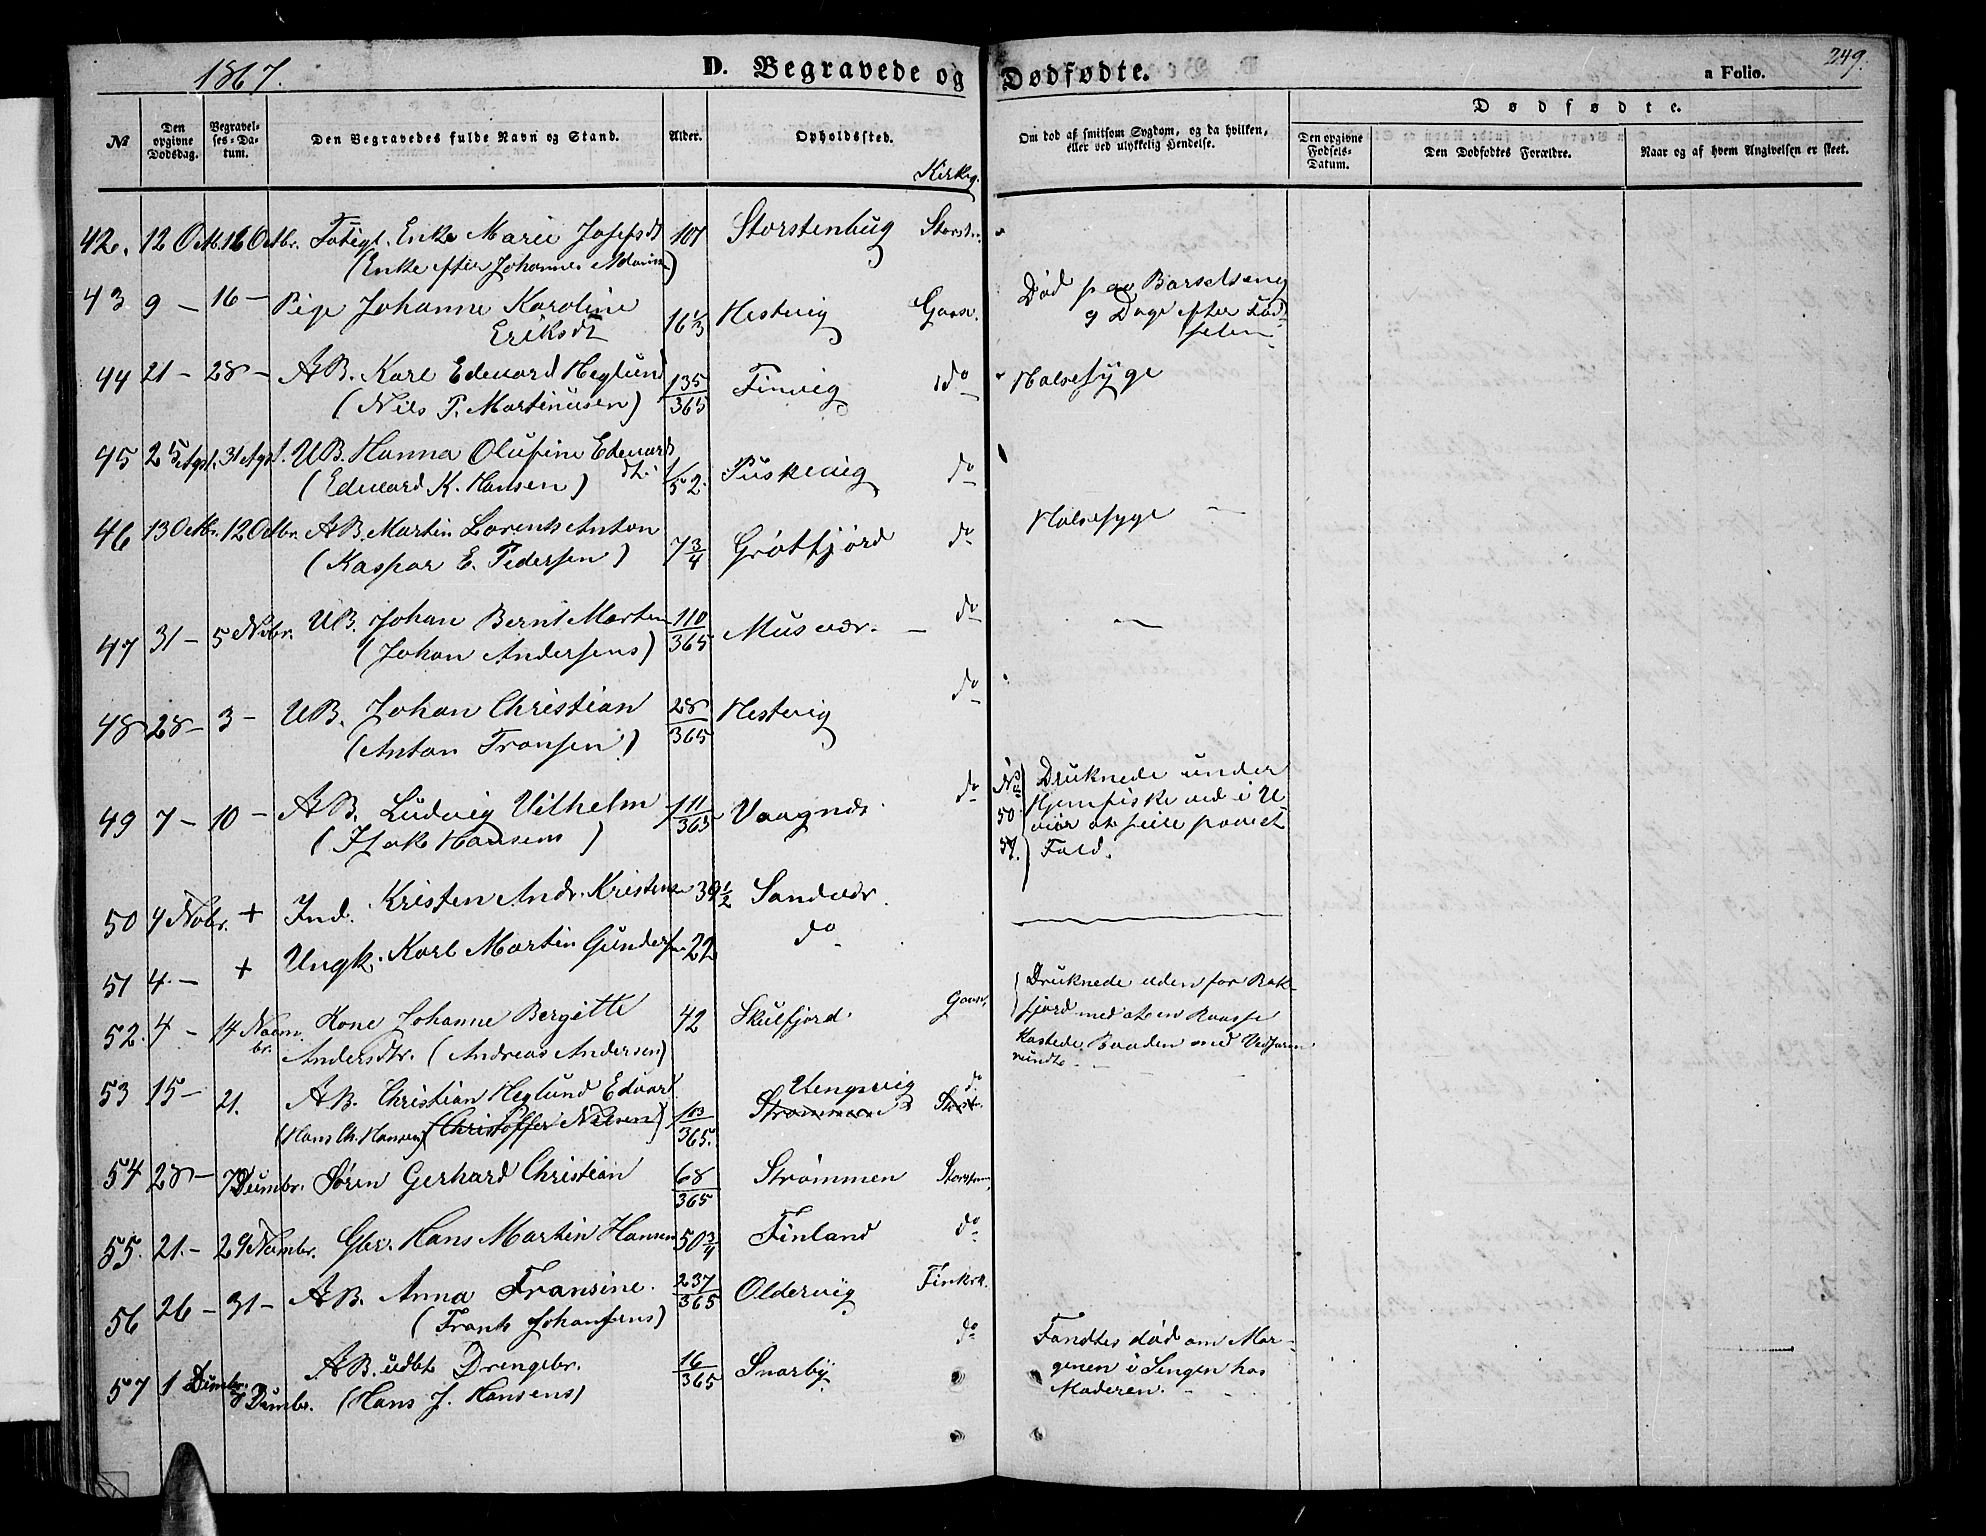 1867.
D. Begravede og Dødfødte.
a Folio.
249.
№
Den opgivne Dødsdag.
Begravelses-Datum.
Den Begravedes fulde Navn og Stand.
Alder.
Opholdssted.
Kirkeg.
Om død af smitsom Sygdom, og da hvilken,
eller ved ulykkelig Hendelse.
Dødfødte.
Den opgivne Fødsels-Datum.
Den Dødfødtes Forældre.
Naar og af hvem Angivelsen er skeet.
42. 12 Octb. 16 Octbr. Fattigl. Enke Marie Josefsdt 101 Storstenbug Storst.
(Enke efter Johannes
43 9 – 16 – Pige Johanne Karoline 16 1/3 Hestvig Gaasv.
Eriksdt
Død paa Barselseng
9 Dage efter Fød-
selen
44 21 – 28 – AB. Karl Edevard Heglund 135/365 Finvig do Halsesyge
(Nils P. Martinusen)
45 25 Agst. 31 Agst. UB. Hanna Olufine Edevards 1/52 Puskevig do
dt.
(Edevard K. Hansen)
46 13 Octbr. 12 Octbr. AB. Martin Lorents Anton 7 3/4 Grøtfjord do Halsesyge –
(Kaspar E. Pedersen)
47 31 – 5 Nobr. UB. Johan Bernt Marten 110/365 Musvær. – do –
(Johan Andersens)
48 28 – 3 – UB. Johan Christian 28/365 Hestvig do
(Anton Fransen)
49 7 – 10 – AB. Ludvig Vilhelm 111/365 Vaagnæs. do
(Isak Hansens)
No 50. 51. Druknede under
Hjemfiske ved i U
veir at seile paa et
Fald.
50 4 Nobr. + Ind. Kristen Andr. Kristens 39 1/2 Sandvær.
51 4. – + Ungk. Karl Martin Gunders 22 do
52. 4 – 14 Novmbr. Kone Johanne Bergitte 42 Skulfjord. Gaasv.
Andersdtr. (Andreas Andersen)
Druknede uden for Rek-
fjord med at en Baasse
kastede Baaden med Vedfaren
rundt.
53 15 – 21. AB. Christian Heglund Edvard 103/365. Uengsvig do
(Hans Ch. Hansen) (Christoffer Nilsen) Strømmen Storst.
54 28 – 7 Dcmbr. Søren Gerhard Christian 68/365 Strømmen Storsten.
55. 21. – 29 Novmbr. Gbr. Hans Martin Hansen 50 3/4 Finland do
56 26 – 31 – AB. Anna Fransine. 237/365 Oldervig Finkrk.
(Frants Johansens)
57 1 Dcmbr. 8 Dcmbr. AB. udbt Drengebr. 16/365 Snarby do
(Hans J. Hansens)
Fandtes død om Mor-
genen i Sengen hos
Moderen. –